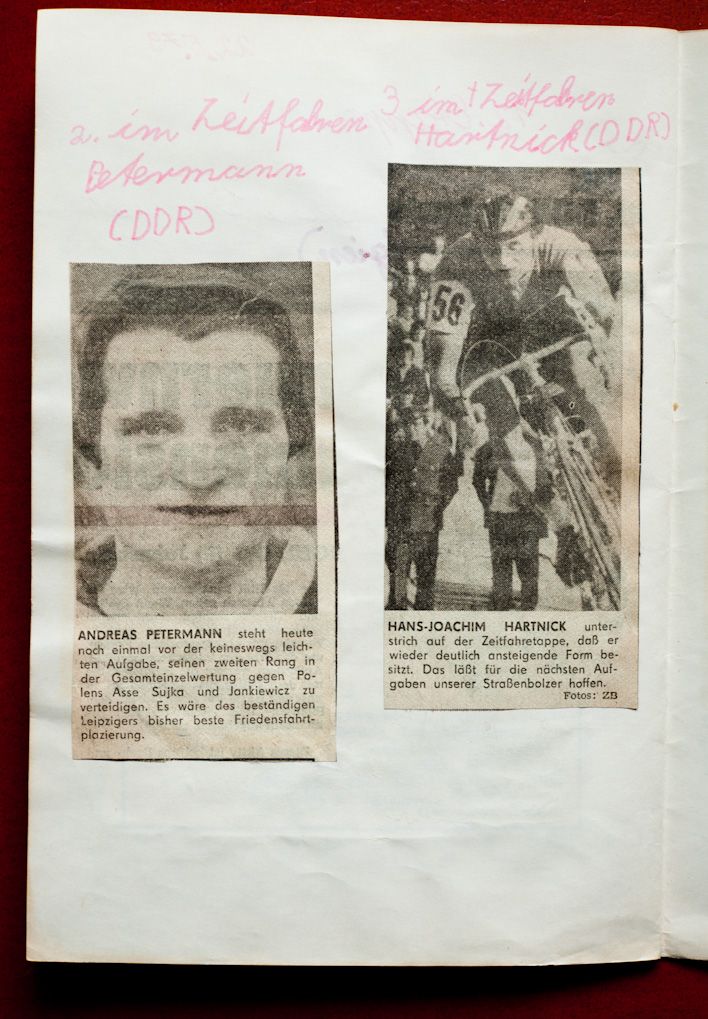 2. im Zeitfahren
Petermann
(DDR)
3 im Zeitfahren
Hartnick (DDR)
56
ANDREAS PETERMANN steht heute
noch einmal vor der keineswegs leich-
ten Aufgabe, seinen zweiten Rang in
der Gesamteinzelwertung gegen Po-
lens Asse Sujka und Jankiewicz zu
verteidigen. Es wäre des beständigen
Leipzigers bisher beste Friedensfahrt-
plazierung.
HANS-JOACHIM HARTNICK unter-
strich auf der Zeitfahretappe, daß er
wieder deutlich ansteigende Form be-
sitzt. Das läßt für die nächsten Auf-
gaben unserer Straßenbolzer hoffen.
Fotos: ZB